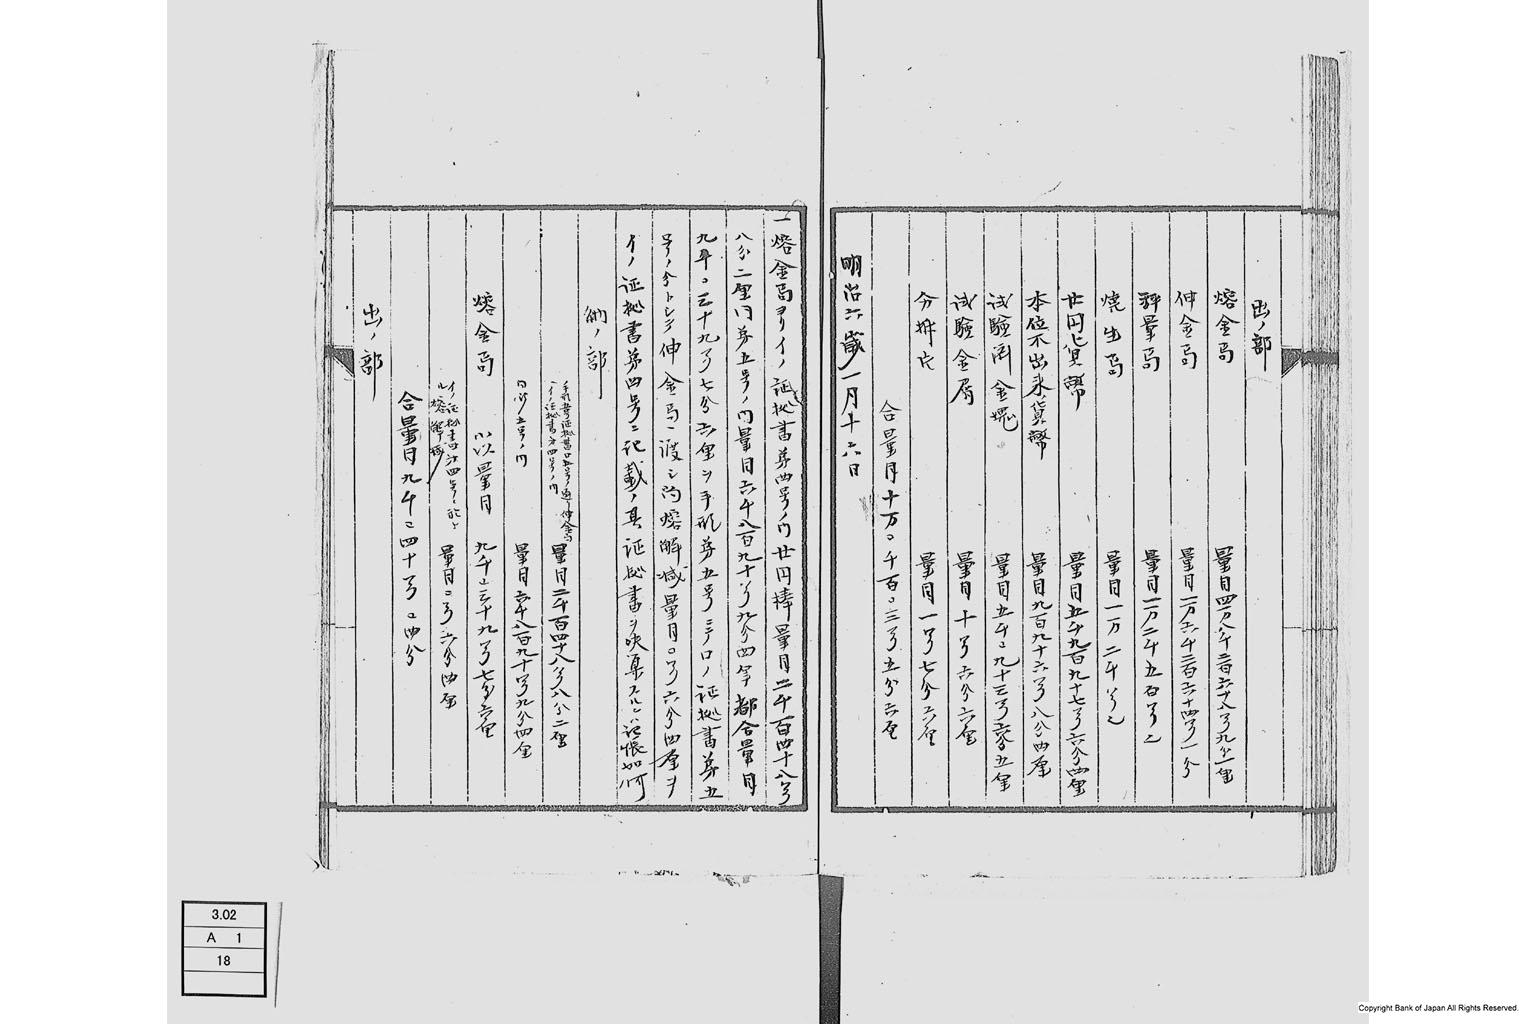 出ノ部
熔金局 量目四万八千二百六十八ヲ九分一厘
伸金局 量目一万六千三百六十四ヲ一分
秤量局 量目一万二千五百ヲ之
焼生局 量目一万二千ヲ之
廿円貨幣 量目五千九百九十七ヲ六分四厘
本位不出来貨幣 量目九百九十六ヲ八分四厘
試験済金塊 量目五千〇九十三ヲ五厘
試験金屑 量目十ヲ六分六厘
分析片 量目一ヲ七分六厘
合量目十万〇千百〇三ヲ五分六厘
明治六歳一月十六日
一熔金局ヨリイノ証拠書第四号ノ内廿円棒量目二千百四十八ヲ
八分二厘同第五号ノ内量目六千八百九十ヲ九分四厘都合量目
九千〇三十九ヲ七分六厘ヲ手形第五号ニテロノ証拠書第五
号ノ分トシテ伸金局ニ渡シ内熔解減量目〇ヲ六分四厘ヲ
イノ証拠書第四号ニ記載ノ其証拠書ヲ決算スルニハ記帳如何
納ノ部
手形第五号証拠書ロ五号ノ通リ伸金局
イノ証拠書第四号ノ内 量目二千百四十八ヲ八分二厘
同第五号ノ内 量目六千八百九十ヲ九分四厘
熔金局 小以量目 九千〇三十九ヲ七分六厘
イノ証拠書第四号ノ於ケ
ル熔解減 量目〇ヲ六分四厘
合量目九千〇四十ヲ〇四分
出ノ部
3.02
A 1
18
Copyright Bank of Japan All Rights Reserved.